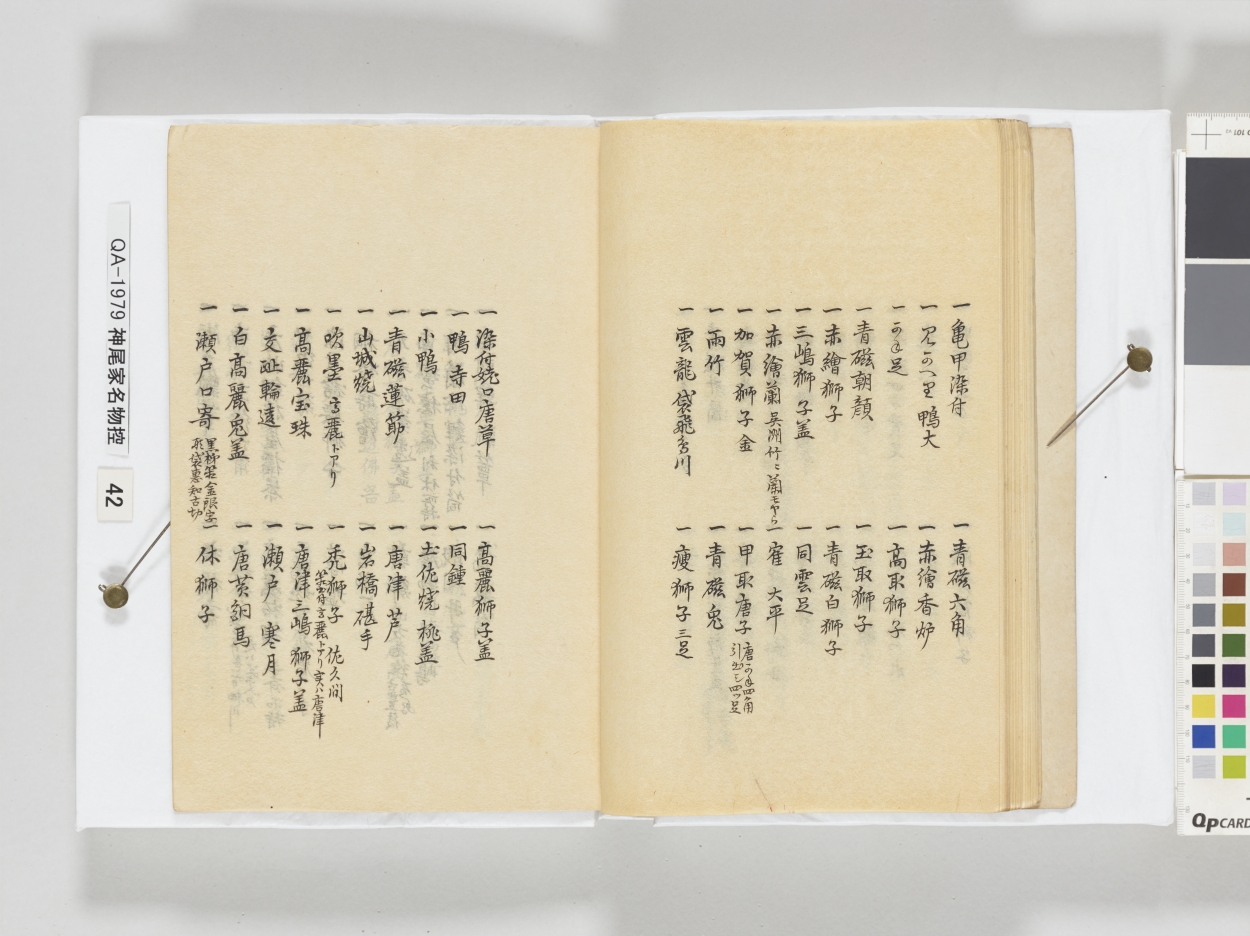 一 亀甲染付
一 鴨大
一 足
一 青磁朝顔
一 赤繪獅子
一 三嶋獅子蓋
一 赤繪蘭 呉洲竹ニ蘭モヤウ
一 加賀獅子金
一 雨竹
一 雲龍 袋飛鳥川
一 青磁六角
一 赤繪香炉
一 高取獅子
一 玉取獅子
一 青磁白獅子
一 同雲足
一 大平
一 甲取唐子
四角
四ツ足
一 青磁兎
一 痩獅子三足
一 染付焼口唐草
一 鴨 寺田
一 小鴨
一 青磁蓮節
一 山城焼
一 吹墨 高麗トアリ
一 高麗宝珠
一 交趾輪違
一 白高麗兎蓋
一 瀬戸口寄
一 高麗獅子蓋
一 同鐘
一 土佐焼桃蓋
一 唐津芦
一 岩橋堪手
一 禿獅子 佐久間
高麗トアリ実ハ唐津
一 唐津三嶋獅子蓋
一 瀬戸 寒月
一 唐茶馬
一 休獅子
QA-1979 神尾家名物控
42
QPCARD